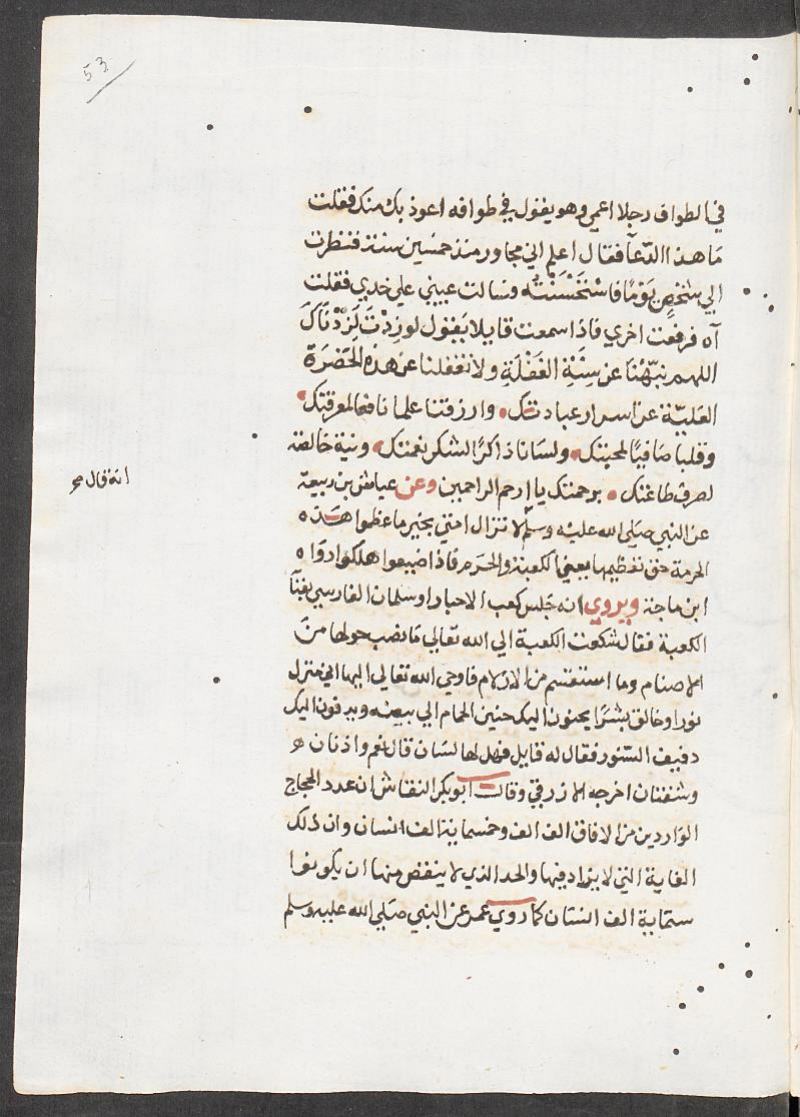 53
في الطواف رجلا اعمي وهو يقول في طوافه اعوذ بك منك فقلت
ما هذا الدّعآ فقال اعلم اني مجاور منذ خمسين سنة فنظرت
الي شخصٍ يَوْمًا فاسْتَحْسَنْتُه وسالت عيني علي خدي فقلت
آه فرفعت اخري فاذا سمعت قايلا يَقول لو زِدْتَ لَزِدْنَاكَ
اللهم نبّهْنَا عن سِنَةِ الغَفْلَةِ ولا تغفلنا عن هذه الحَضرَة
العَليّة عن اسرار عبادتك وارزقنا علما نافعا لمعرفتك
وقلبا صَافيًا لمحبتك ولسَانا ذاكرًا لشكر نعمتك ونية خالصة
لصرف طاعتك برحمتك يا ارحم الراحمين وعن عياش بن ربيعة
انه قال صح
عن النبي صَلي الله عليه وسلم لا تزال امتي بخير ما عظموا هَذه
الحرمة حق تعظيمها يعني الكعبة والحَرم فاذا ضيعوا هلكوا رَوَاه
ابن ماجة ويروي انه جَلس كعب الاحبار او سلمان الفارسي بفنآ
الكعبة فقال شكت الكعبة الي الله تعَالي مَا نصب حولها منَ
الاصنام وما استقسم من الازلام فاوحي الله تعَالي اليها اني منزل
نورا وخالق بشرًا يحنون اليك حنين الحمام الي بيضه ويدفون اليك
دفيف النسور فقال له قايل فهل لها لسَان قال نعم واذنان
وشفتان اخرجه الازرقي وقال ابو بكر النقاش ان عدد الحجاج
الوَاردين من الافاق الف الف وخمسماية الف انسان وان ذلك
الغاية التي لا يزاد فيها والحد الذي لا ينقص منها ان يكونوا
ستماية الف انسان كما روي عمر عن النبي صَلي الله عليه وسلم